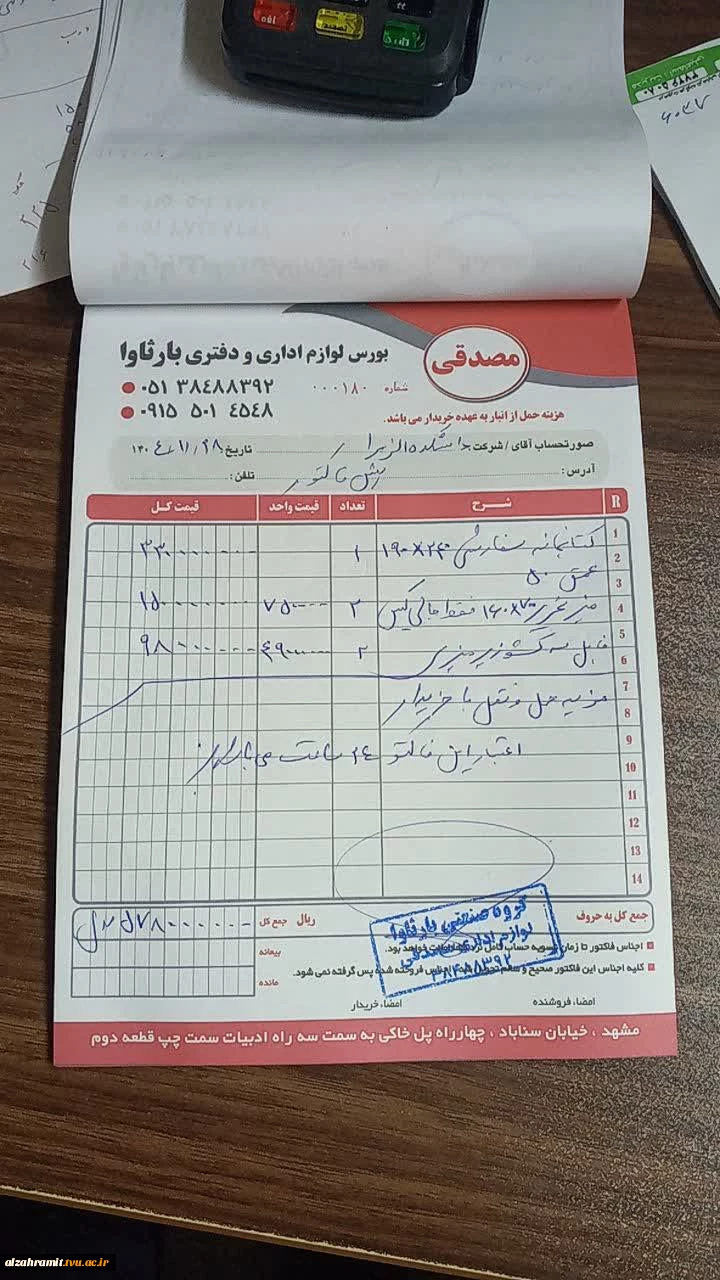 مصدقی
بورس لوازم اداری و دفتری بارثاوا
۰۵۱ ۳۸۴۸۸۳۹۲
۰۹۱۵ ۵۰۱ ۴۵۴۸
شماره ۰۰۰۱۸۰
هزینه حمل از انبار به عهده خریدار می باشد.
صورتحساب آقای / شرکت: دانشکده الزهرا تاریخ ۱۴۰۴/۱۱/۲۸
آدرس: پیش فاکتور تلفن:
R شــرح تعداد قیمت واحد قیمت کل
1 کتابخانه سفارشی ۲۴۰×۱۹۰ ۱ ۳۳۰۰۰۰۰۰۰
2
3 عمق ۵۰
4 میز تحریر ۷۰×۱۶۰ فقط جالی کیس ۲ ۷۵۰۰۰۰۰۰ ۱۵۰۰۰۰۰۰۰
5
6 فایل سه کشو زیر میزی ۲ ۴۹۰۰۰۰۰۰ ۹۸۰۰۰۰۰۰
7 هزینه حمل و نقل با خریدار
8
9 اعتبار این فاکتور ۲۴ ساعت می باشد
10
11
12
13
14
جمع کل به حروف ریال جمع کل ۵۷۸۰۰۰۰۰۰
بیعانه
مانده
گروه صنعتی بارثاوا
لوازم اداری مصدقی
۳۸۴۸۸۳۹۲
امضاء فروشنده امضاء خریدار
مشهد ، خیابان سناباد ، چهارراه پل خاکی به سمت سه راه ادبیات سمت چپ قطعه دوم
alzahramit.tvu.ac.ir